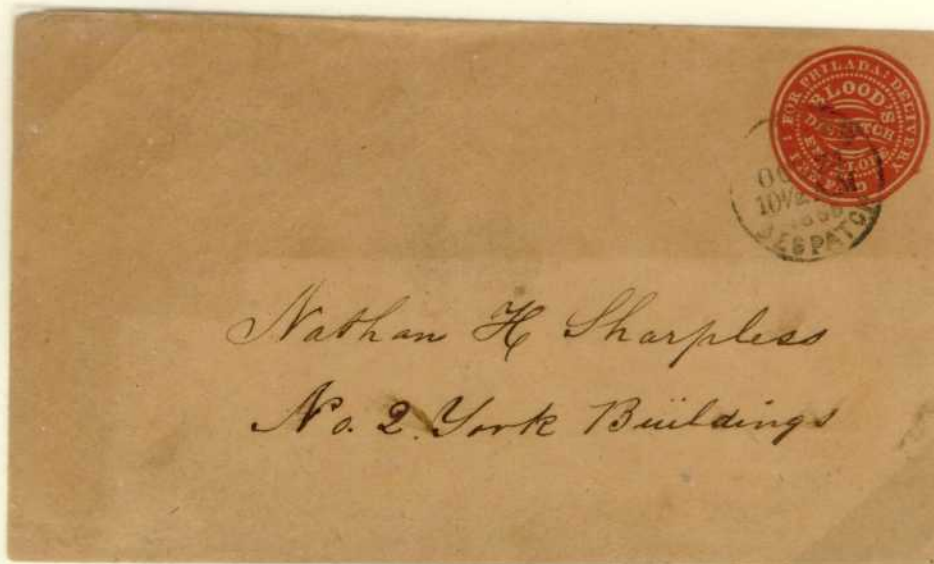 FOR PHILADA: DELIVERY
BLOOD'S
DESPATCH
ENVELOPE
PRE PAID
10½
DESPATCH
Nathan H Sharpless
No. 2. York Buildings